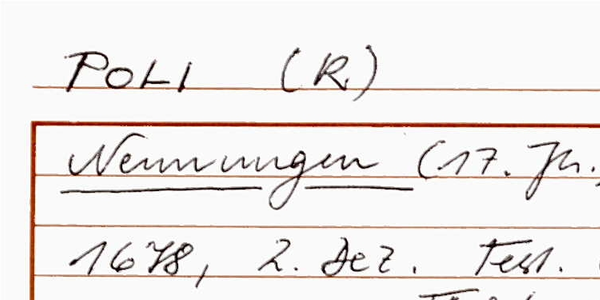 POLI (R.)
Nennungen (17. Jh.,
1678, 2. Dez. Test.